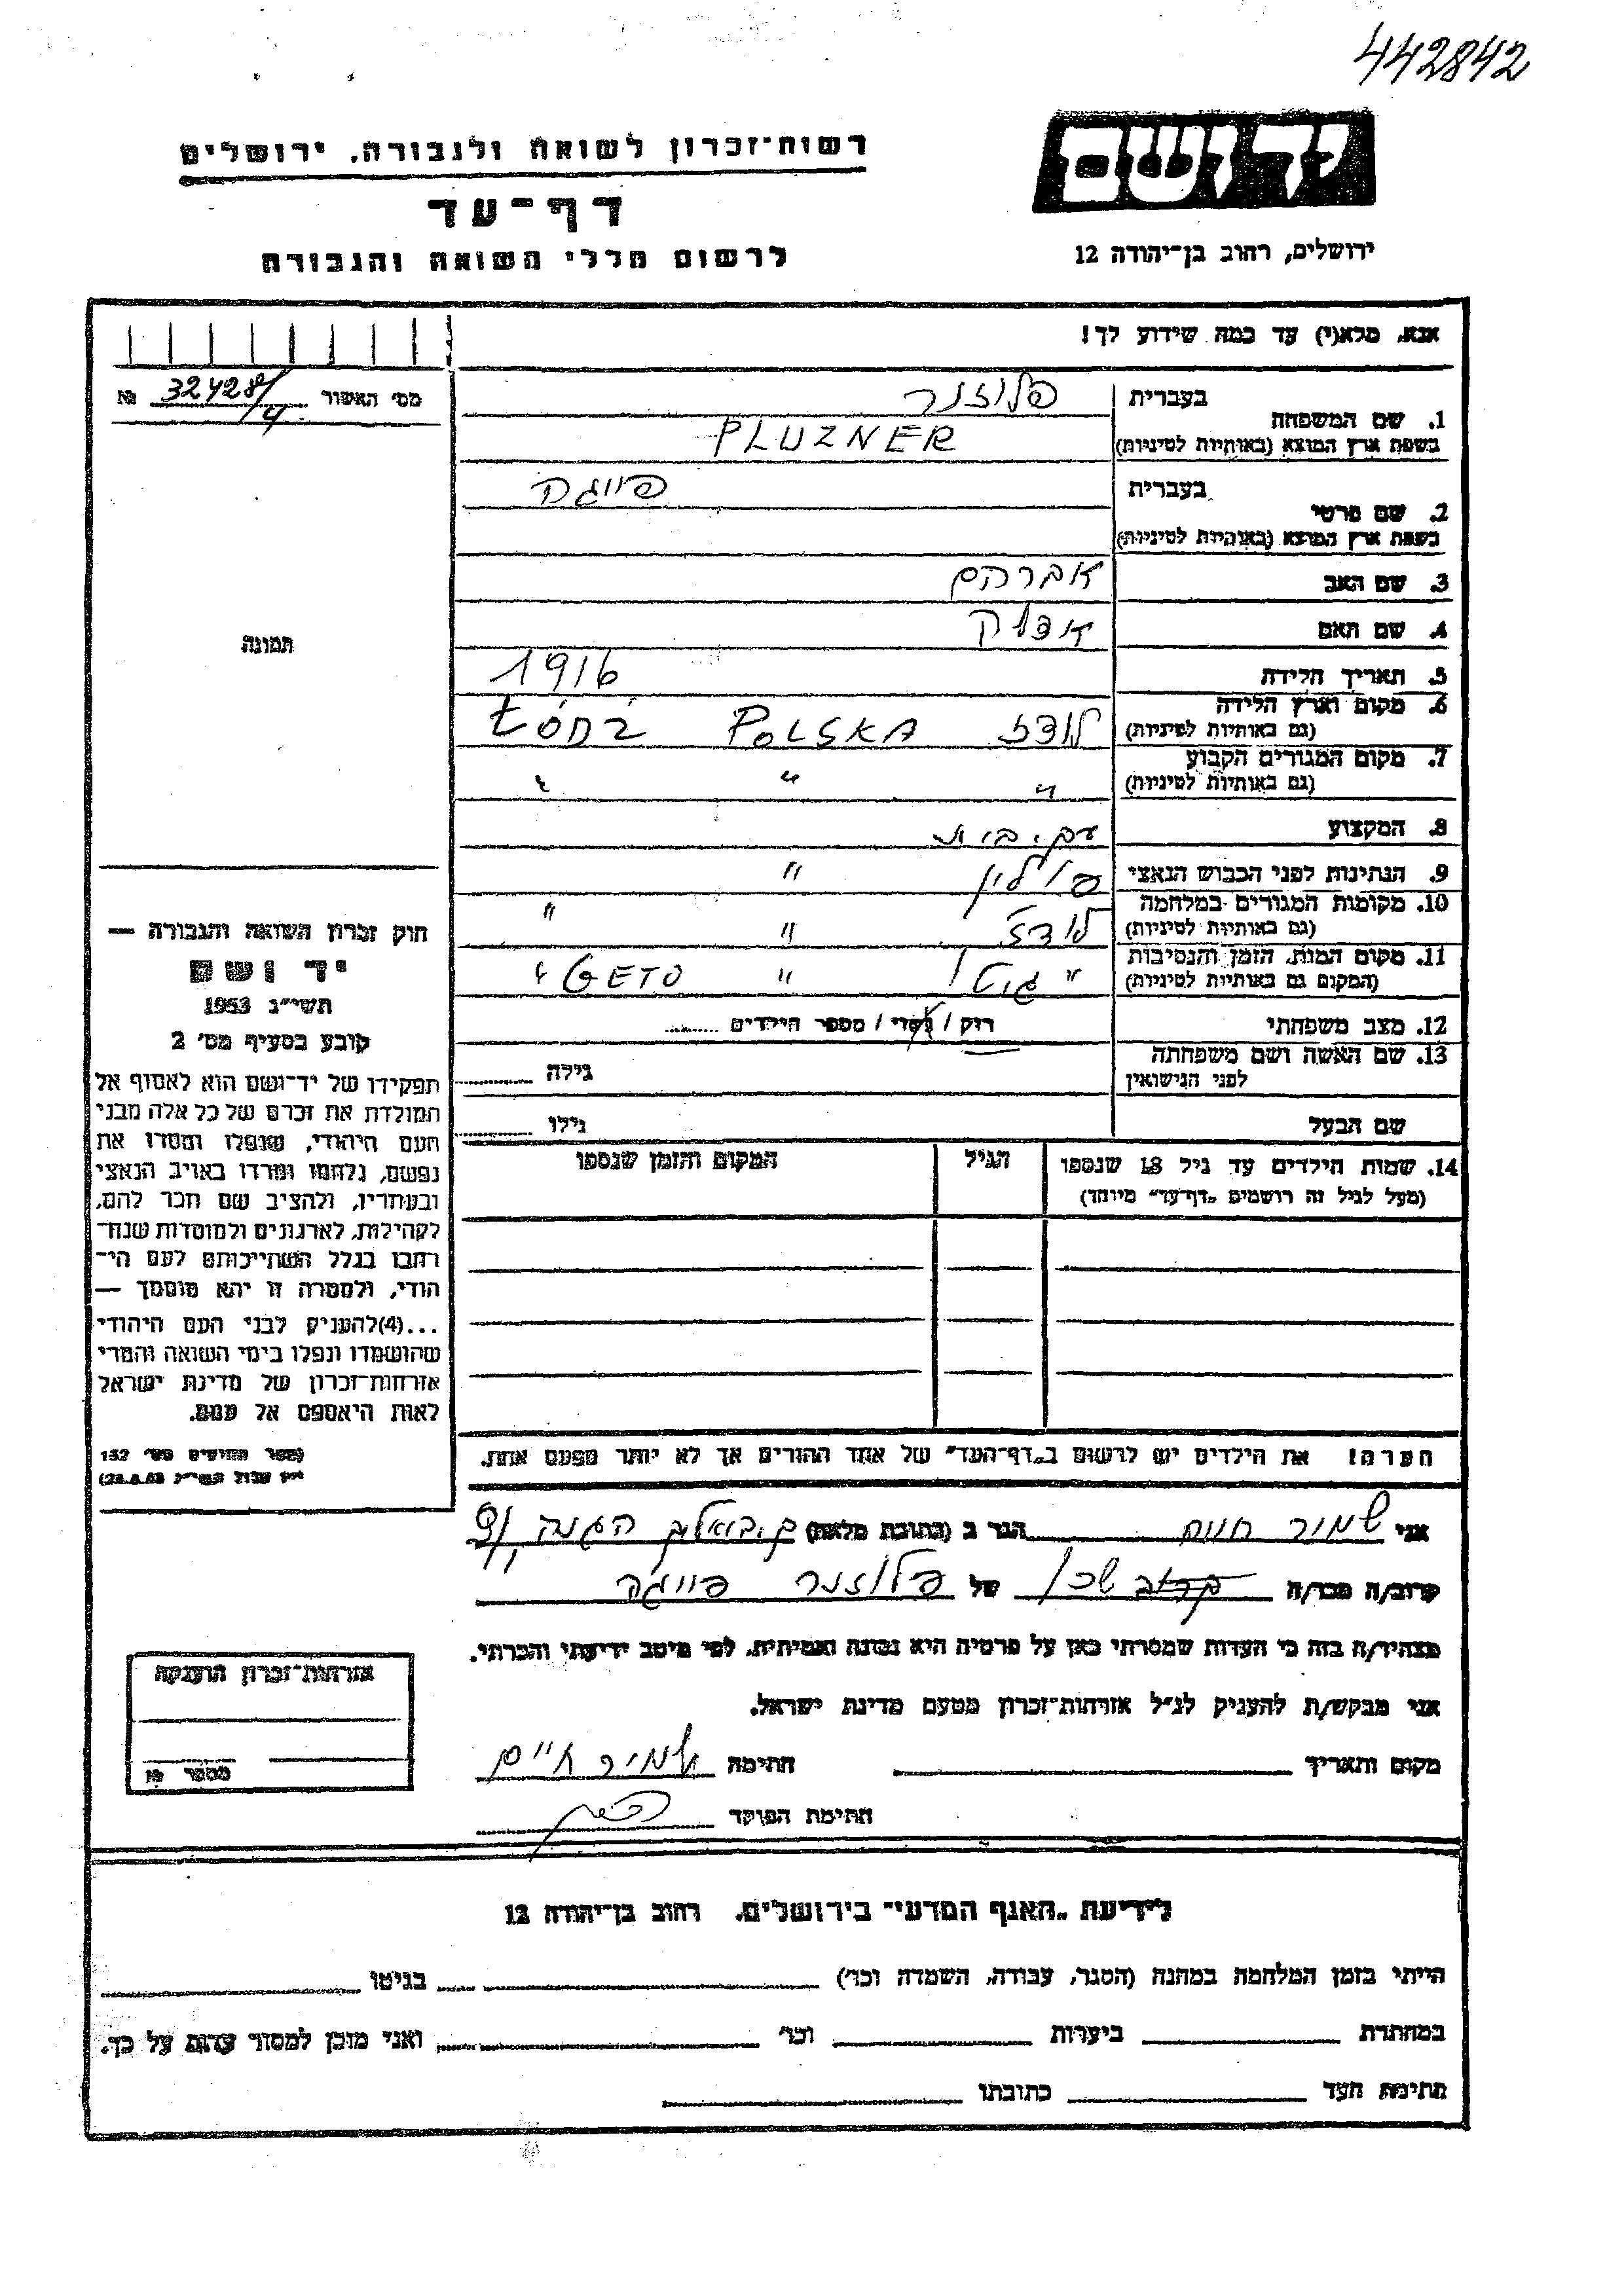 442842
יד ושם
רשות־זכרון לשואה ולגבורה, ירושלים
דף־עד
לרשום חללי השואה והגבורה
ירושלים, רחוב בן־יהודה 12
אנא, מלא(י) עד כמה שידוע לך!
מס' האשור 32428/4 №
תמונה
1. שם המשפחה בעברית פלוזנר
בשפת ארץ המוצא (באותיות לטיניות) PLUZNER
2. שם פרטי בעברית פייגה
בשפת ארץ המוצא (באותיות לטיניות)
3. שם האב אברהם
4. שם האם
5. תאריך הלידה 1916
6. מקום וארץ הלידה
(גם באותיות לטיניות) לודז POLSKA ŁÓDŹ
7. מקום המגורים הקבוע
(גם באותיות לטיניות) " " "
8. המקצוע
9. הנתינות לפני הכבוש הנאצי פולין "
10. מקומות המגורים במלחמה
(גם באותיות לטיניות) לודז " "
11. מקום המות, הזמן והנסיבות
(המקום גם באותיות לטיניות) " גיטו " GETO "
12. מצב משפחתי רוק / נשוי / מספר הילדים
13. שם האשה ושם משפחתה
לפני הנישואין גילה
שם הבעל גילו
14. שמות הילדים עד גיל 18 שנספו הגיל המקום והזמן שנספו
(מעל לגיל זה רושמים „דף־עד" מיוחד)
הערה! את הילדים יש לרשום ב„דף־העד" של אחד ההורים אך לא יותר מפעם אחת.
חוק זכרון השואה והגבורה —
יד ושם
תשי"ג 1953
קובע בסעיף מס' 2
תפקידו של יד־ושם הוא לאסוף אל
המולדת את זכרם של כל אלה מבני
העם היהודי, שנפלו ומסרו את
נפשם, נלחמו ומרדו באויב הנאצי
ובעוזריו, ולהציב שם וזכר להם,
לקהילות, לארגונים ולמוסדות שנח־
רבו בגלל השתייכותם לעם הי־
הודי, ולמטרה זו יהא מוסמך —
...(4)להעניק לבני העם היהודי
שהושמדו ונפלו בימי השואה והמרי
אזרחות־זכרון של מדינת ישראל
לאות היאספם אל עמם.
(ספר החוקים מס' 132
אני שמיר חיים הגר ב (כתובת מלאה) ק. ביאליק הגנה
קרוב/ה מכר/ה שכן של פלוזנר פייגה
מצהיר/ה בזה כי העדות שמסרתי כאן על פרטיה היא נכונה ואמיתית, לפי מיטב ידיעתי והכרתי.
אני מבקש/ת להעניק לנ"ל אזרחות־זכרון מטעם מדינת ישראל.
מקום ותאריך חתימה שמיר חיים
חתימת הפוקד
אזרחות־זכרון הוענקה
מספר №
לידיעת „האגף המדעי" בירושלים, רחוב בן־יהודה 12
הייתי בזמן המלחמה במחנה (הסגר, עבודה, השמדה וכו') בגיטו
במחתרת ביערות וכו' ואני מוכן למסור עדות על כך.
חתימת העד כתובתו